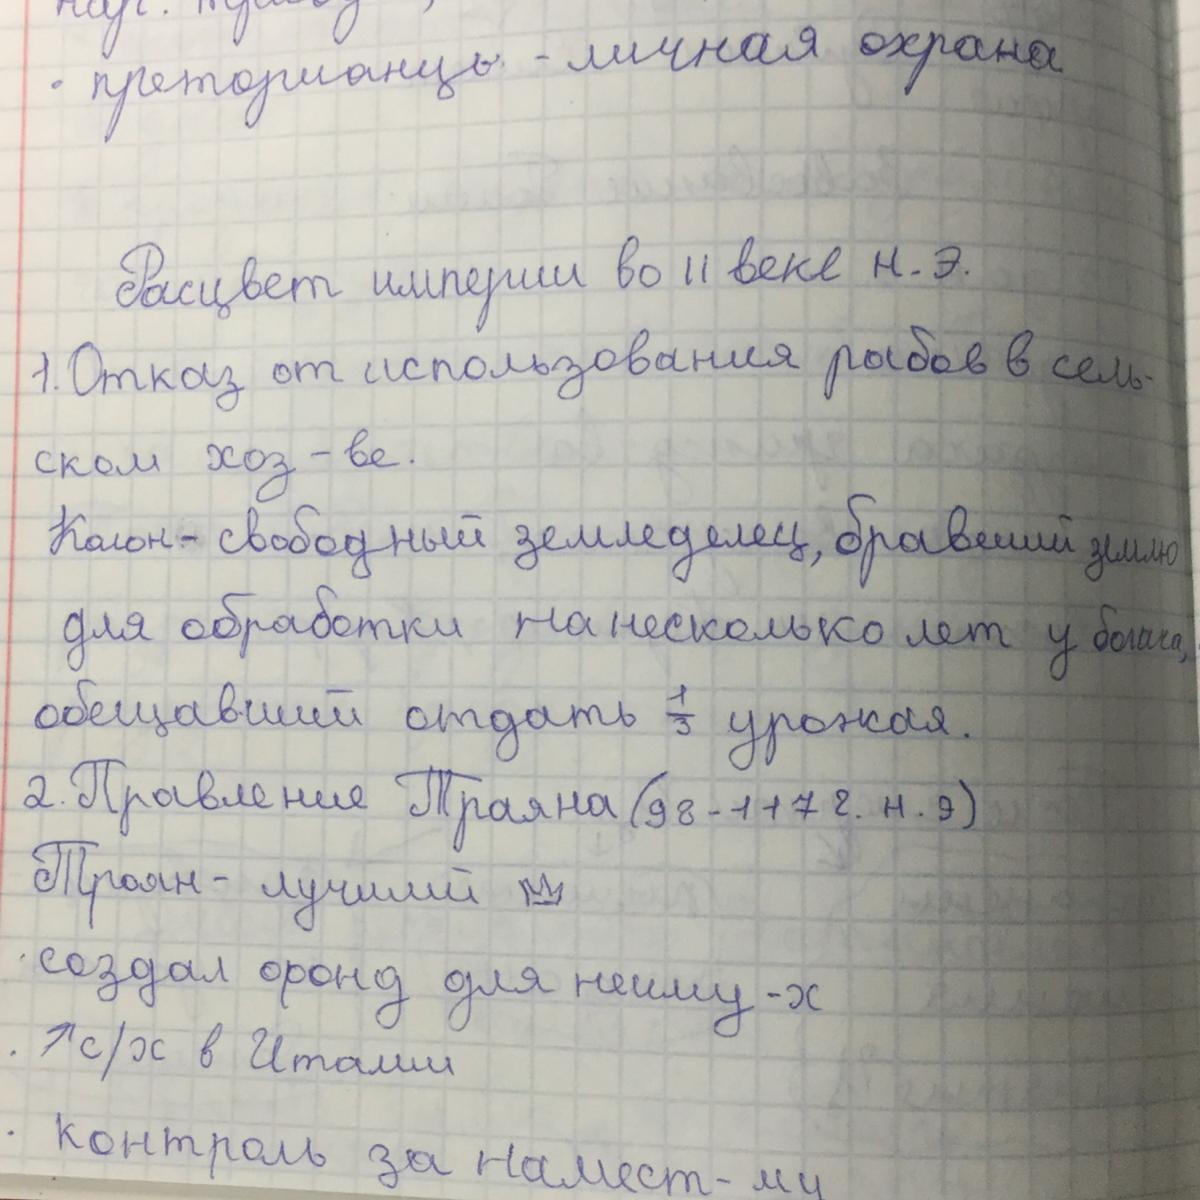 • преторианцы - личная охрана
Расцвет империи во II веке н. э.
1. Отказ от использования рабов в сель-
ском хоз-ве.
Колон - свободный земледелец, бравший землю
для обработки на несколько лет у богача,
обещавший отдать 1/3 урожая.
2. Правление Траяна (98-117 г. н. э)
Троян - лучший
• создал фонд для неиму-х
• ↑ с/х в Италии
• контроль за намест-ми